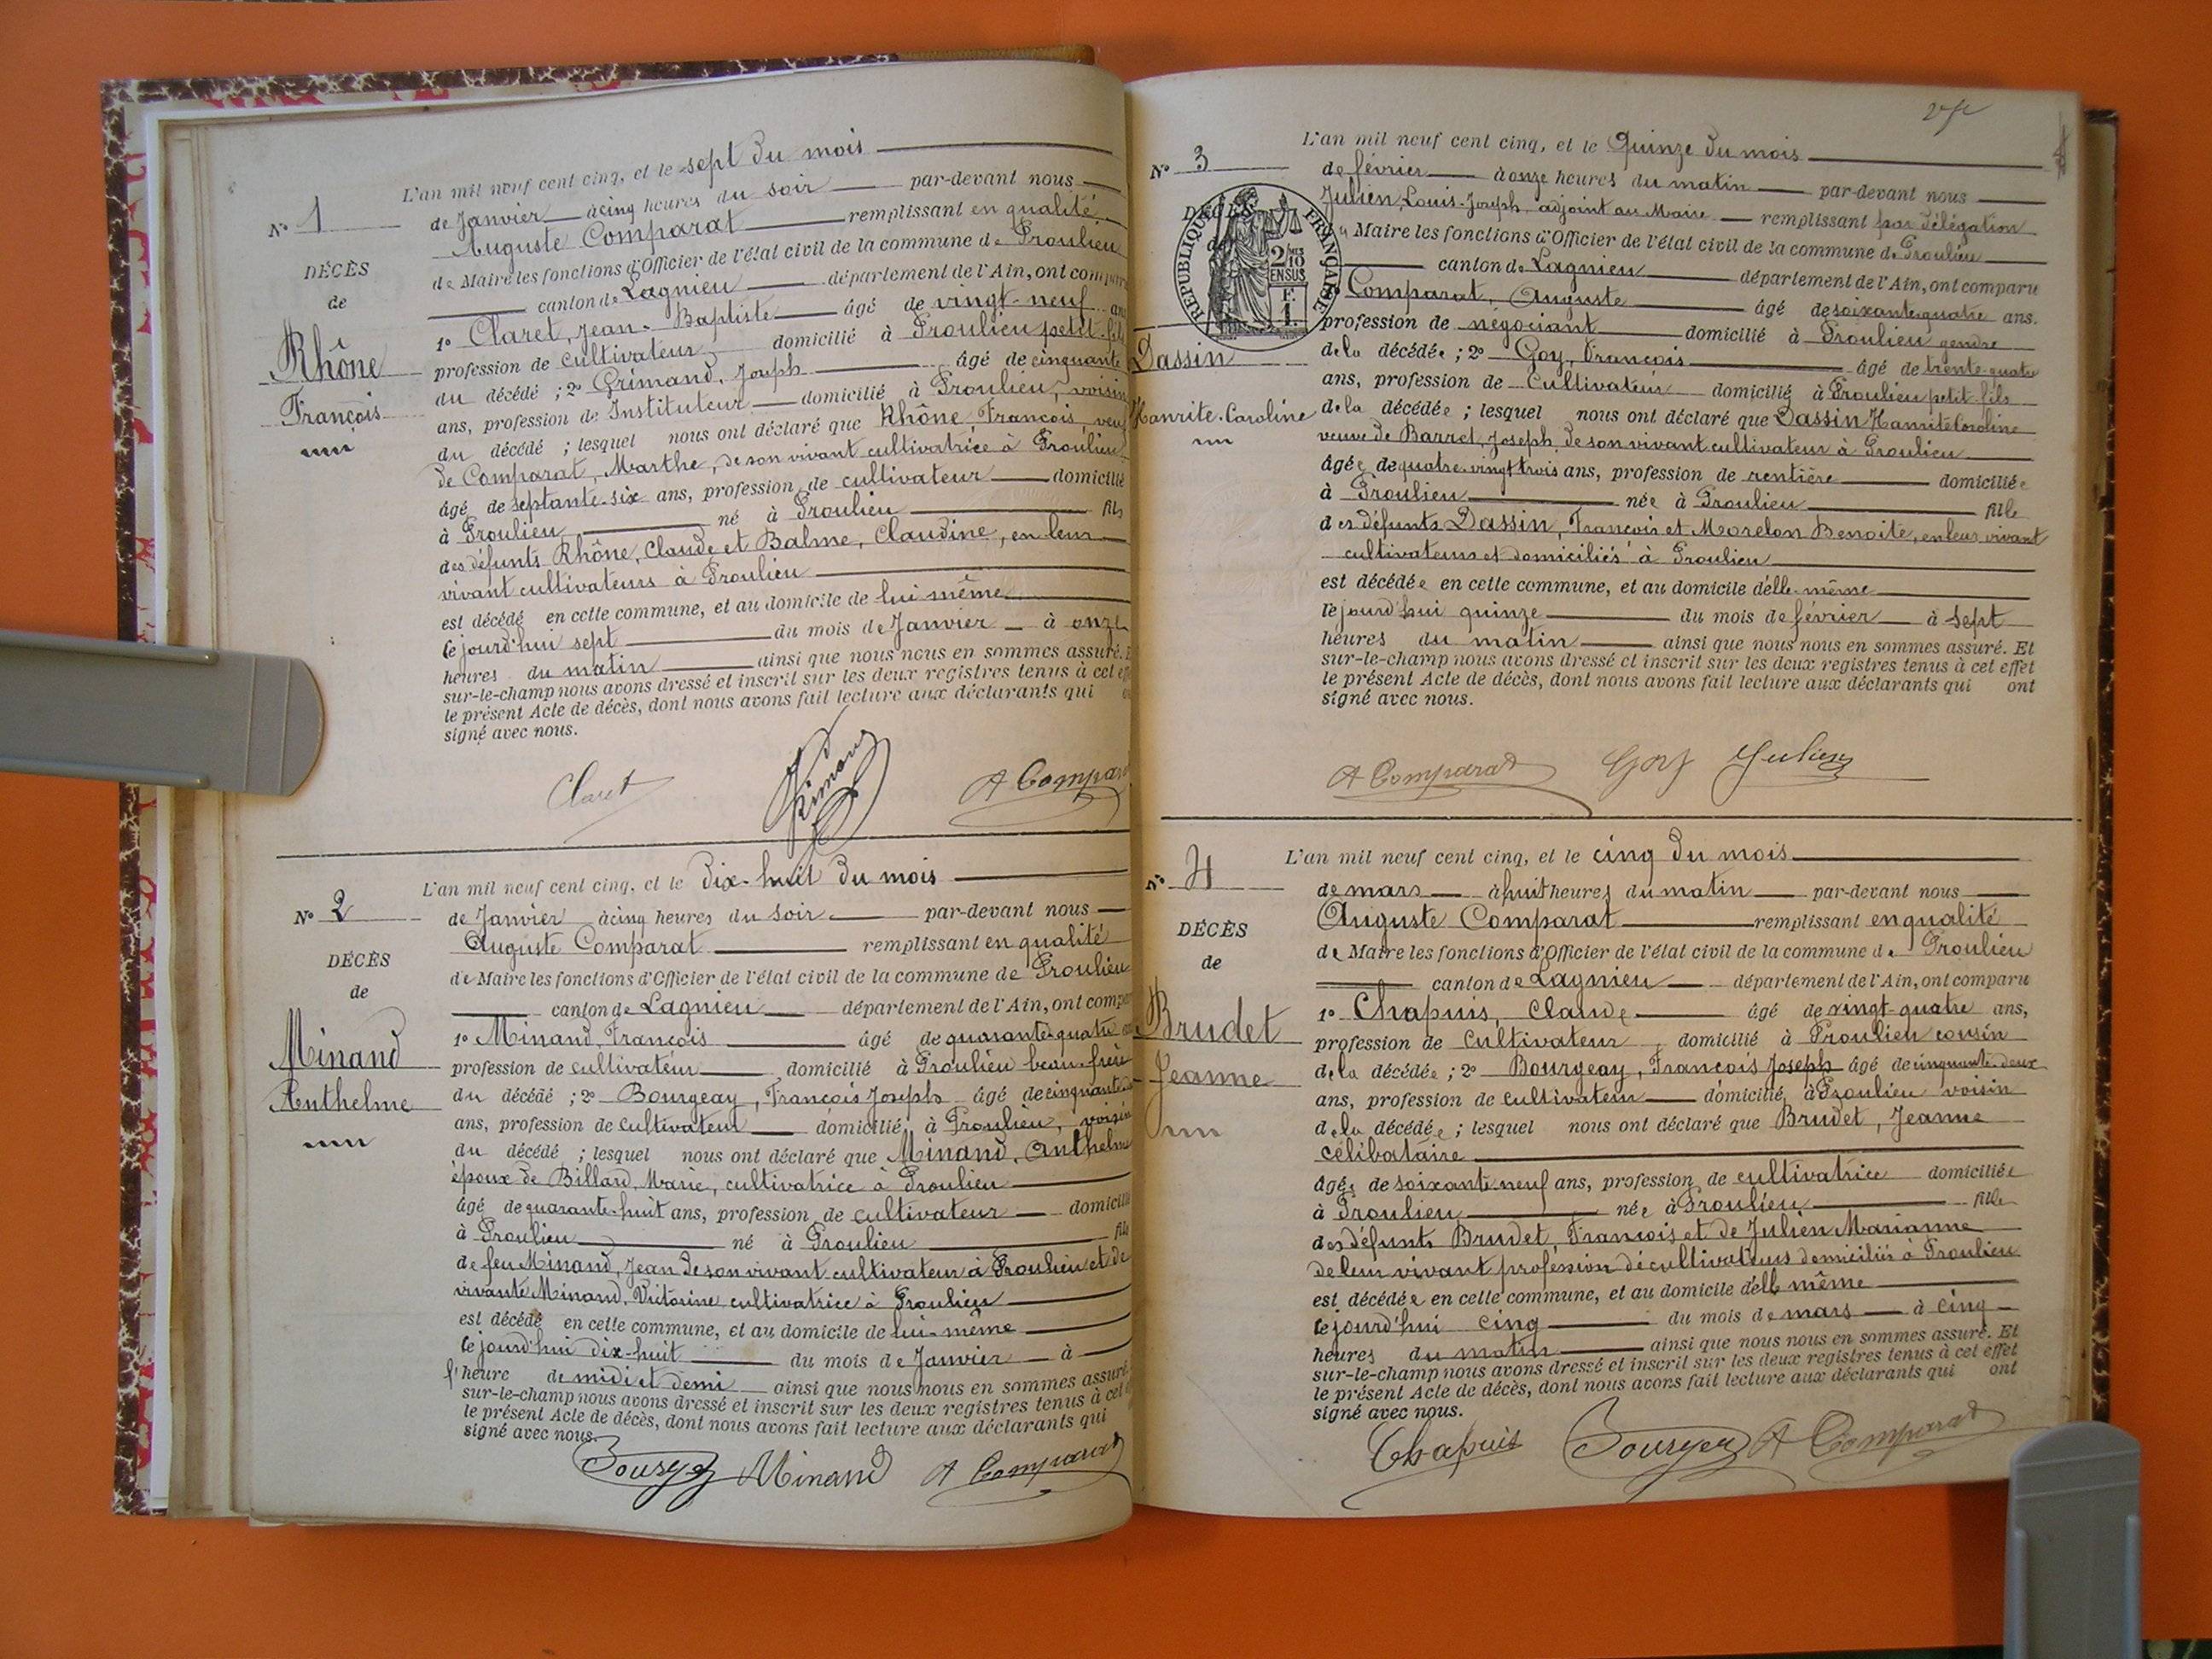 L'an mil neuf cent cinq, et le sept du mois
N° 1
de Janvier à cinq heures du soir par-devant nous
Auguste Comparat remplissant en qualité
DÉCÈS
de Maire les fonctions d'Officier de l'état civil de la commune de Proulieu
de
canton de Lagnieu département de l'Ain, ont comparu
1° Claret, Jean-Baptiste âgé de vingt-neuf ans
Rhône
profession de cultivateur domicilié à Proulieu petit-fils
du décédé ; 2° Grimand, Joseph âgé de cinquante
François
ans, profession de Instituteur domicilié à Proulieu, voisin
du décédé ; lesquel nous ont déclaré que Rhône, François, veuf
de Comparat, Marthe, de son vivant cultivatrice à Proulieu
âgé de septante-six ans, profession de cultivateur domicilié
à Proulieu né à Proulieu fils
des défunts Rhône, Claude et Balme, Claudine, en leur
vivant cultivateurs à Proulieu
est décédé en cette commune, et au domicile de lui même
cejourd'hui sept du mois de Janvier à onze
heures du matin ainsi que nous nous en sommes assuré. E
sur-le-champ nous avons dressé et inscrit sur les deux registres tenus à cet eff
le présent Acte de décès, dont nous avons fait lecture aux déclarants qui o
signé avec nous.
Claret Grimand A Comparat
L'an mil neuf cent cinq, et le dix-huit du mois
N° 2
de Janvier à cinq heures du soir par-devant nous
Auguste Comparat remplissant en qualité
DÉCÈS
de Maire les fonctions d'Officier de l'état civil de la commune de Proulieu
de
canton de Lagnieu département de l'Ain, ont compar
Minand
1° Minand, François âgé de quarante-quatre ans
profession de cultivateur domicilié à Proulieu beau-frère
Anthelme
du décédé ; 2° Bourgeay, François Joseph âgé de cinquante
ans, profession de cultivateur domicilié à Proulieu, voisin
du décédé ; lesquel nous ont déclaré que Minand, Anthelme
époux de Billard, Marie, cultivatrice à Proulieu
âgé de quarante-huit ans, profession de cultivateur domicilié
à Proulieu né à Proulieu fils
de feu Minand, Jean de son vivant cultivateur à Proulieu et de
vivante Minand, Victorine cultivatrice à Proulieu
est décédé en cette commune, et au domicile de lui-même
cejourd'hui dix-huit du mois de Janvier à
l'heure de midi et demi ainsi que nous nous en sommes assuré.
sur-le-champ nous avons dressé et inscrit sur les deux registres tenus à cet
le présent Acte de décès, dont nous avons fait lecture aux déclarants qui
signé avec nous.
Bourgeay Minand A Comparat
L'an mil neuf cent cinq, et le Quinze du mois
N° 3
de février à onze heures du matin par-devant nous
DÉCÈS
Julien, Louis-Joseph, adjoint au Maire remplissant par délégation
de
du Maire les fonctions d'Officier de l'état civil de la commune de Proulieu
RÉPUBLIQUE FRANÇAISE
2/10 EN SUS
F. 1.
canton de Lagnieu département de l'Ain, ont comparu
Comparat, Auguste âgé de soixante-quatre ans.
profession de négociant domicilié à Proulieu gendre
Dassin
de la décédée ; 2° Goy, François âgé de trente-quatre
ans, profession de Cultivateur domicilié à Proulieu petit-fils
Hanrite-Caroline
de la décédée ; lesquel nous ont déclaré que Dassin Hanrite Caroline
veuve de Barret, Joseph, de son vivant cultivateur à Proulieu
âgée de quatre-vingt trois ans, profession de rentière domiciliée
à Proulieu née à Proulieu fille
des défunts Dassin, François et Morelon Benoite, en leur vivant
cultivateurs et domiciliés à Proulieu
est décédée en cette commune, et au domicile d'elle-même
cejourd'hui quinze du mois de février à sept
heures du matin ainsi que nous nous en sommes assuré. Et
sur-le-champ nous avons dressé et inscrit sur les deux registres tenus à cet effet
le présent Acte de décès, dont nous avons fait lecture aux déclarants qui ont
signé avec nous.
A Comparat Goy Julien
L'an mil neuf cent cinq, et le cinq du mois
N° 4
de mars à huit heures du matin par-devant nous
Auguste Comparat remplissant en qualité
DÉCÈS
de Maire les fonctions d'Officier de l'état civil de la commune de Proulieu
de
canton de Lagnieu département de l'Ain, ont comparu
Brudet
1° Chapuis, Claude âgé de vingt-quatre ans,
profession de Cultivateur domicilié à Proulieu cousin
Jeanne
de la décédée ; 2° Bourgeay, François Joseph âgé de cinquante-deux
ans, profession de cultivateur domicilié à Proulieu voisin
de la décédée ; lesquel nous ont déclaré que Brudet, Jeanne
célibataire
âgée de soixante-neuf ans, profession de cultivatrice domiciliée
à Proulieu née à Proulieu fille
des défunts Brudet, François et de Julien Marianne
de leur vivant profession de cultivateurs domiciliés à Proulieu
est décédée en cette commune, et au domicile d'elle même
cejourd'hui cinq du mois de mars à cinq
heures du matin ainsi que nous nous en sommes assuré. Et
sur-le-champ nous avons dressé et inscrit sur les deux registres tenus à cet effet
le présent Acte de décès, dont nous avons fait lecture aux déclarants qui ont
signé avec nous.
Chapuis Bourgeay A Comparat